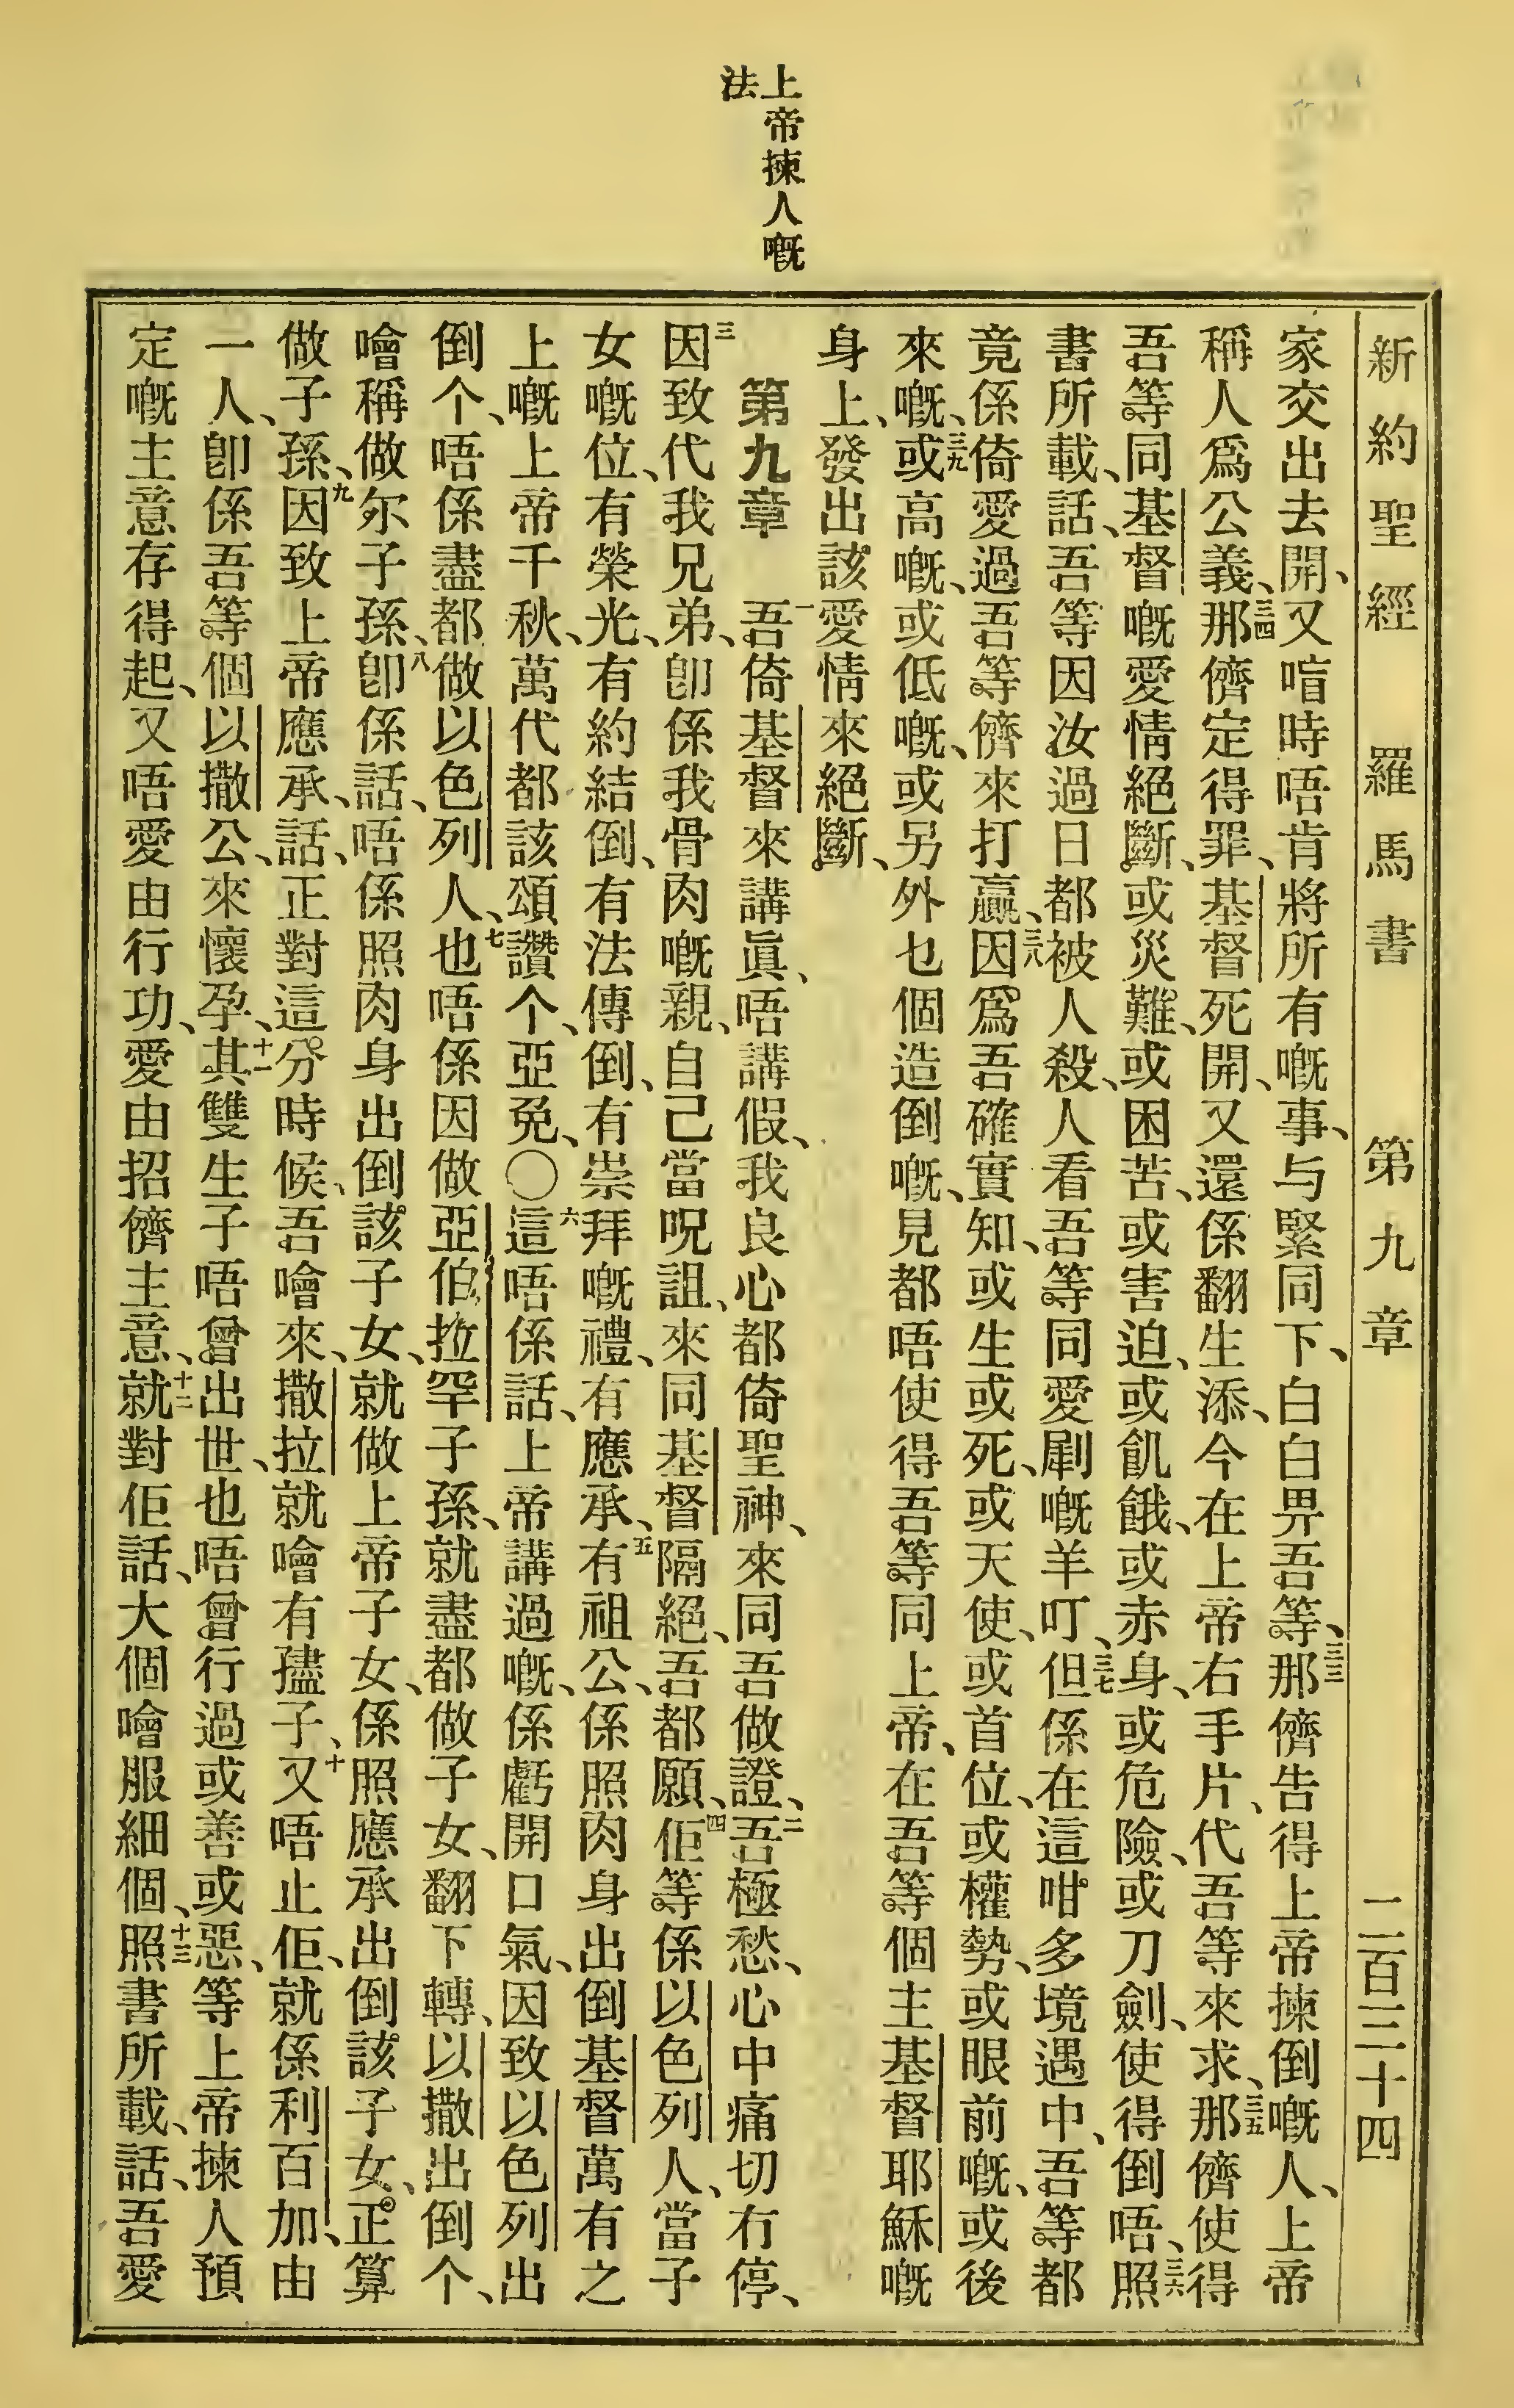 新約聖經 羅馬書 第九章 二百三十四
上帝揀人嘅
法
家交出去開、又唁時唔肯將所有嘅事、与緊同下、白白畀吾等、三三那儕告得上帝揀倒嘅人、上帝
稱人爲公義、三四那儕定得罪、基督死開、又還係翻生添、今在上帝右手片、代吾等來求、三五那儕使得
吾等同基督嘅愛情絕斷、或災難、或困苦、或害迫、或飢餓、或赤身、或危險、或刀劍、使得倒唔、三六照
書所載、話、吾等因汝過日都被人殺、人看吾等同愛劘嘅羊叮、三七但係在這咁多境遇中、吾等都
竟係倚愛過吾等儕來打贏、三八因爲吾確實知、或生或死、或天使、或首位、或權勢、或眼前嘅、或後
來嘅、三九或高嘅、或低嘅、或另外乜個造倒嘅、見都唔使得吾等同上帝、在吾等個主基督耶穌嘅
身上、發出該愛情來絕斷、
第九章 一吾倚基督來講眞、唔講假、我良心都倚聖神、來同吾做證、二吾極愁、心中痛切冇停、
三因致代我兄弟、卽係我骨肉嘅親、自己當呪詛、來同基督隔絕、吾都願、四佢等係以色列人、當子
女嘅位、有榮光、有約結倒、有法傳倒、有崇拜嘅禮、有應承、五有祖公、係照肉身出倒基督萬有之
上嘅上帝千秋、萬代都該頌讚个、亞免、〇六這唔係話、上帝講過嘅、係虧開口氣、因致以色列出
倒个、唔係盡都做以色列人、七也唔係因做亞伯拉罕子孫、就盡都做子女、翻下轉、以撒出倒个、
噲稱做尔子孫、八卽係話、唔係照肉身出倒該子女、就做上帝子女、係照應承出倒該子女、正算
做子孫、九因致上帝應承、話、正對這分時候、吾噲來、撒拉就噲有孻子、十又唔止佢、就係利百加、由
一人、卽係吾等個以撒公、來懷孕、十一其雙生子唔曾出世、也唔曾行過或善或惡、等上帝揀人預
定嘅主意存得起、又唔愛由行功、愛由招儕主意、十二就對佢話、大個噲服細個、十三照書所載、話、吾愛